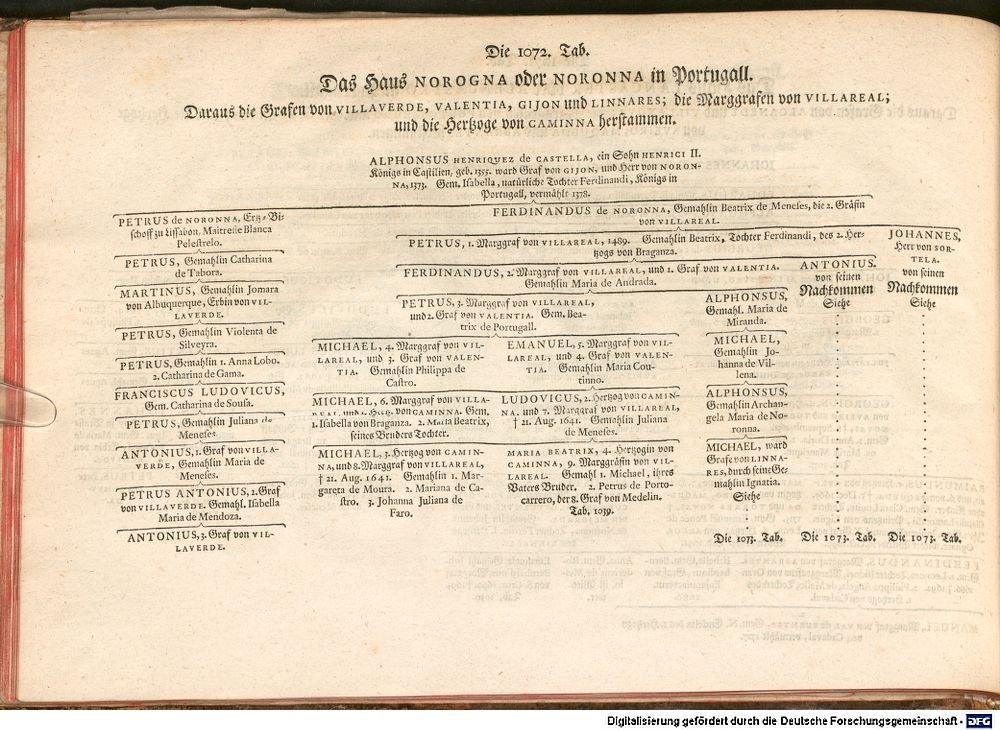 Die 1072. Tab.
Das Haus NOROGNA oder NORONNA in Portugall.
Daraus die Grafen von VILLAVERDE, VALENTIA, GIJON und LINNARES; die Marggrafen von VILLAREAL;
und die Hertzoge von CAMINNA herstammen.
ALPHONSUS HENRIQUEZ de CASTELLA, ein Sohn HENRICI II.
Königs in Castilien, geb. 1355. ward Graf von GIJON, und Herr von NORON-
NA, 1373. Gem. Isabella, natürliche Tochter Ferdinandi, Königs in
Portugall, vermählt 1378.
PETRUS de NORONNA, Ertz-Bi-
schoff zu Lissabon, Maitresse Blanca
Pelestrelo.
PETRUS, Gemahlin Catharina
de Tabora.
MARTINUS, Gemahlin Jomara
von Albuquerque, Erbin von VIL-
LAVERDE.
PETRUS, Gemahlin Violenta de
Silveyra.
PETRUS, Gemahlin 1. Anna Lobo.
2. Catharina de Gama.
FRANCISCUS LUDOVICUS,
Gem. Catharina de Sousa.
PETRUS, Gemahlin Juliana de
Meneses.
ANTONIUS, 1. Graf von VILLA-
VERDE, Gemahlin Maria de
Meneses.
PETRUS ANTONIUS, 2. Graf
von VILLAVERDE. Gemahl. Isabella
Maria de Mendoza.
ANTONIUS, 3. Graf von VIL-
LAVERDE.
FERDINANDUS de NORONNA, Gemahlin Beatrix de Meneses, die 2. Gräfin
von VILLAREAL.
PETRUS, 1. Marggraf von VILLAREAL, 1489. Gemahlin Beatrix, Tochter Ferdinandi, des 2. Her-
tzogs von Braganza.
FERDINANDUS, 2. Marggraf von VILLAREAL, und 1. Graf von VALENTIA.
Gemahlin Maria de Andrada.
PETRUS, 3. Marggraf von VILLAREAL,
und 2. Graf von VALENTIA. Gem. Bea-
trix de Portugall.
MICHAEL, 4. Marggraf von VIL-
LAREAL, und 3. Graf von VALEN-
TIA. Gemahlin Philippa de
Castro.
MICHAEL, 6. Marggraf von VILLA-
REAL, und 1. Hertz. von CAMINNA. Gem.
1. Isabella von Braganza. 2. Maria Beatrix,
seines Bruders Tochter.
MICHAEL, 3. Hertzog von CAMIN-
NA, und 8. Marggraf von VILLAREAL,
† 21. Aug. 1641. Gemahlin 1. Mar-
gareta de Moura. 2. Mariana de Ca-
stro. 3. Johanna Juliana de
Faro.
EMANUEL, 5. Marggraf von VIL-
LAREAL, und 4. Graf von VALEN-
TIA. Gemahlin Maria Cou-
tinno.
LUDOVICUS, 2. Hertzog von CAMIN-
NA, und 7. Marggraf von VILLAREAL,
† 21. Aug. 1641. Gemahlin Juliana
de Meneses.
MARIA BEATRIX, 4. Hertzogin von
CAMINNA, 9. Marggräfin von VIL-
LAREAL. Gemahl 1. Michael, ihres
Vaters Bruder. 2. Petrus de Porto-
carrero, der 8. Graf von Medelin.
Tab. 1039.
ALPHONSUS,
Gemahl. Maria de
Miranda.
MICHAEL,
Gemahlin Jo-
hanna de Vil-
lena.
ALPHONSUS,
Gemahlin Archan-
gela Maria de No-
ronna.
MICHAEL, ward
Grafe von LINNA-
RES, durch seine Ge-
mahlin Ignatia.
Siehe
Die 1073. Tab.
ANTONIUS.
von seinen
Nachkommen
Siehe
Die 1073. Tab.
JOHANNES,
Herr von SOR-
TELA.
von seinen
Nachkommen
Siehe
Die 1073. Tab.
Digitalisierung gefördert durch die Deutsche Forschungsgemeinschaft - DFG